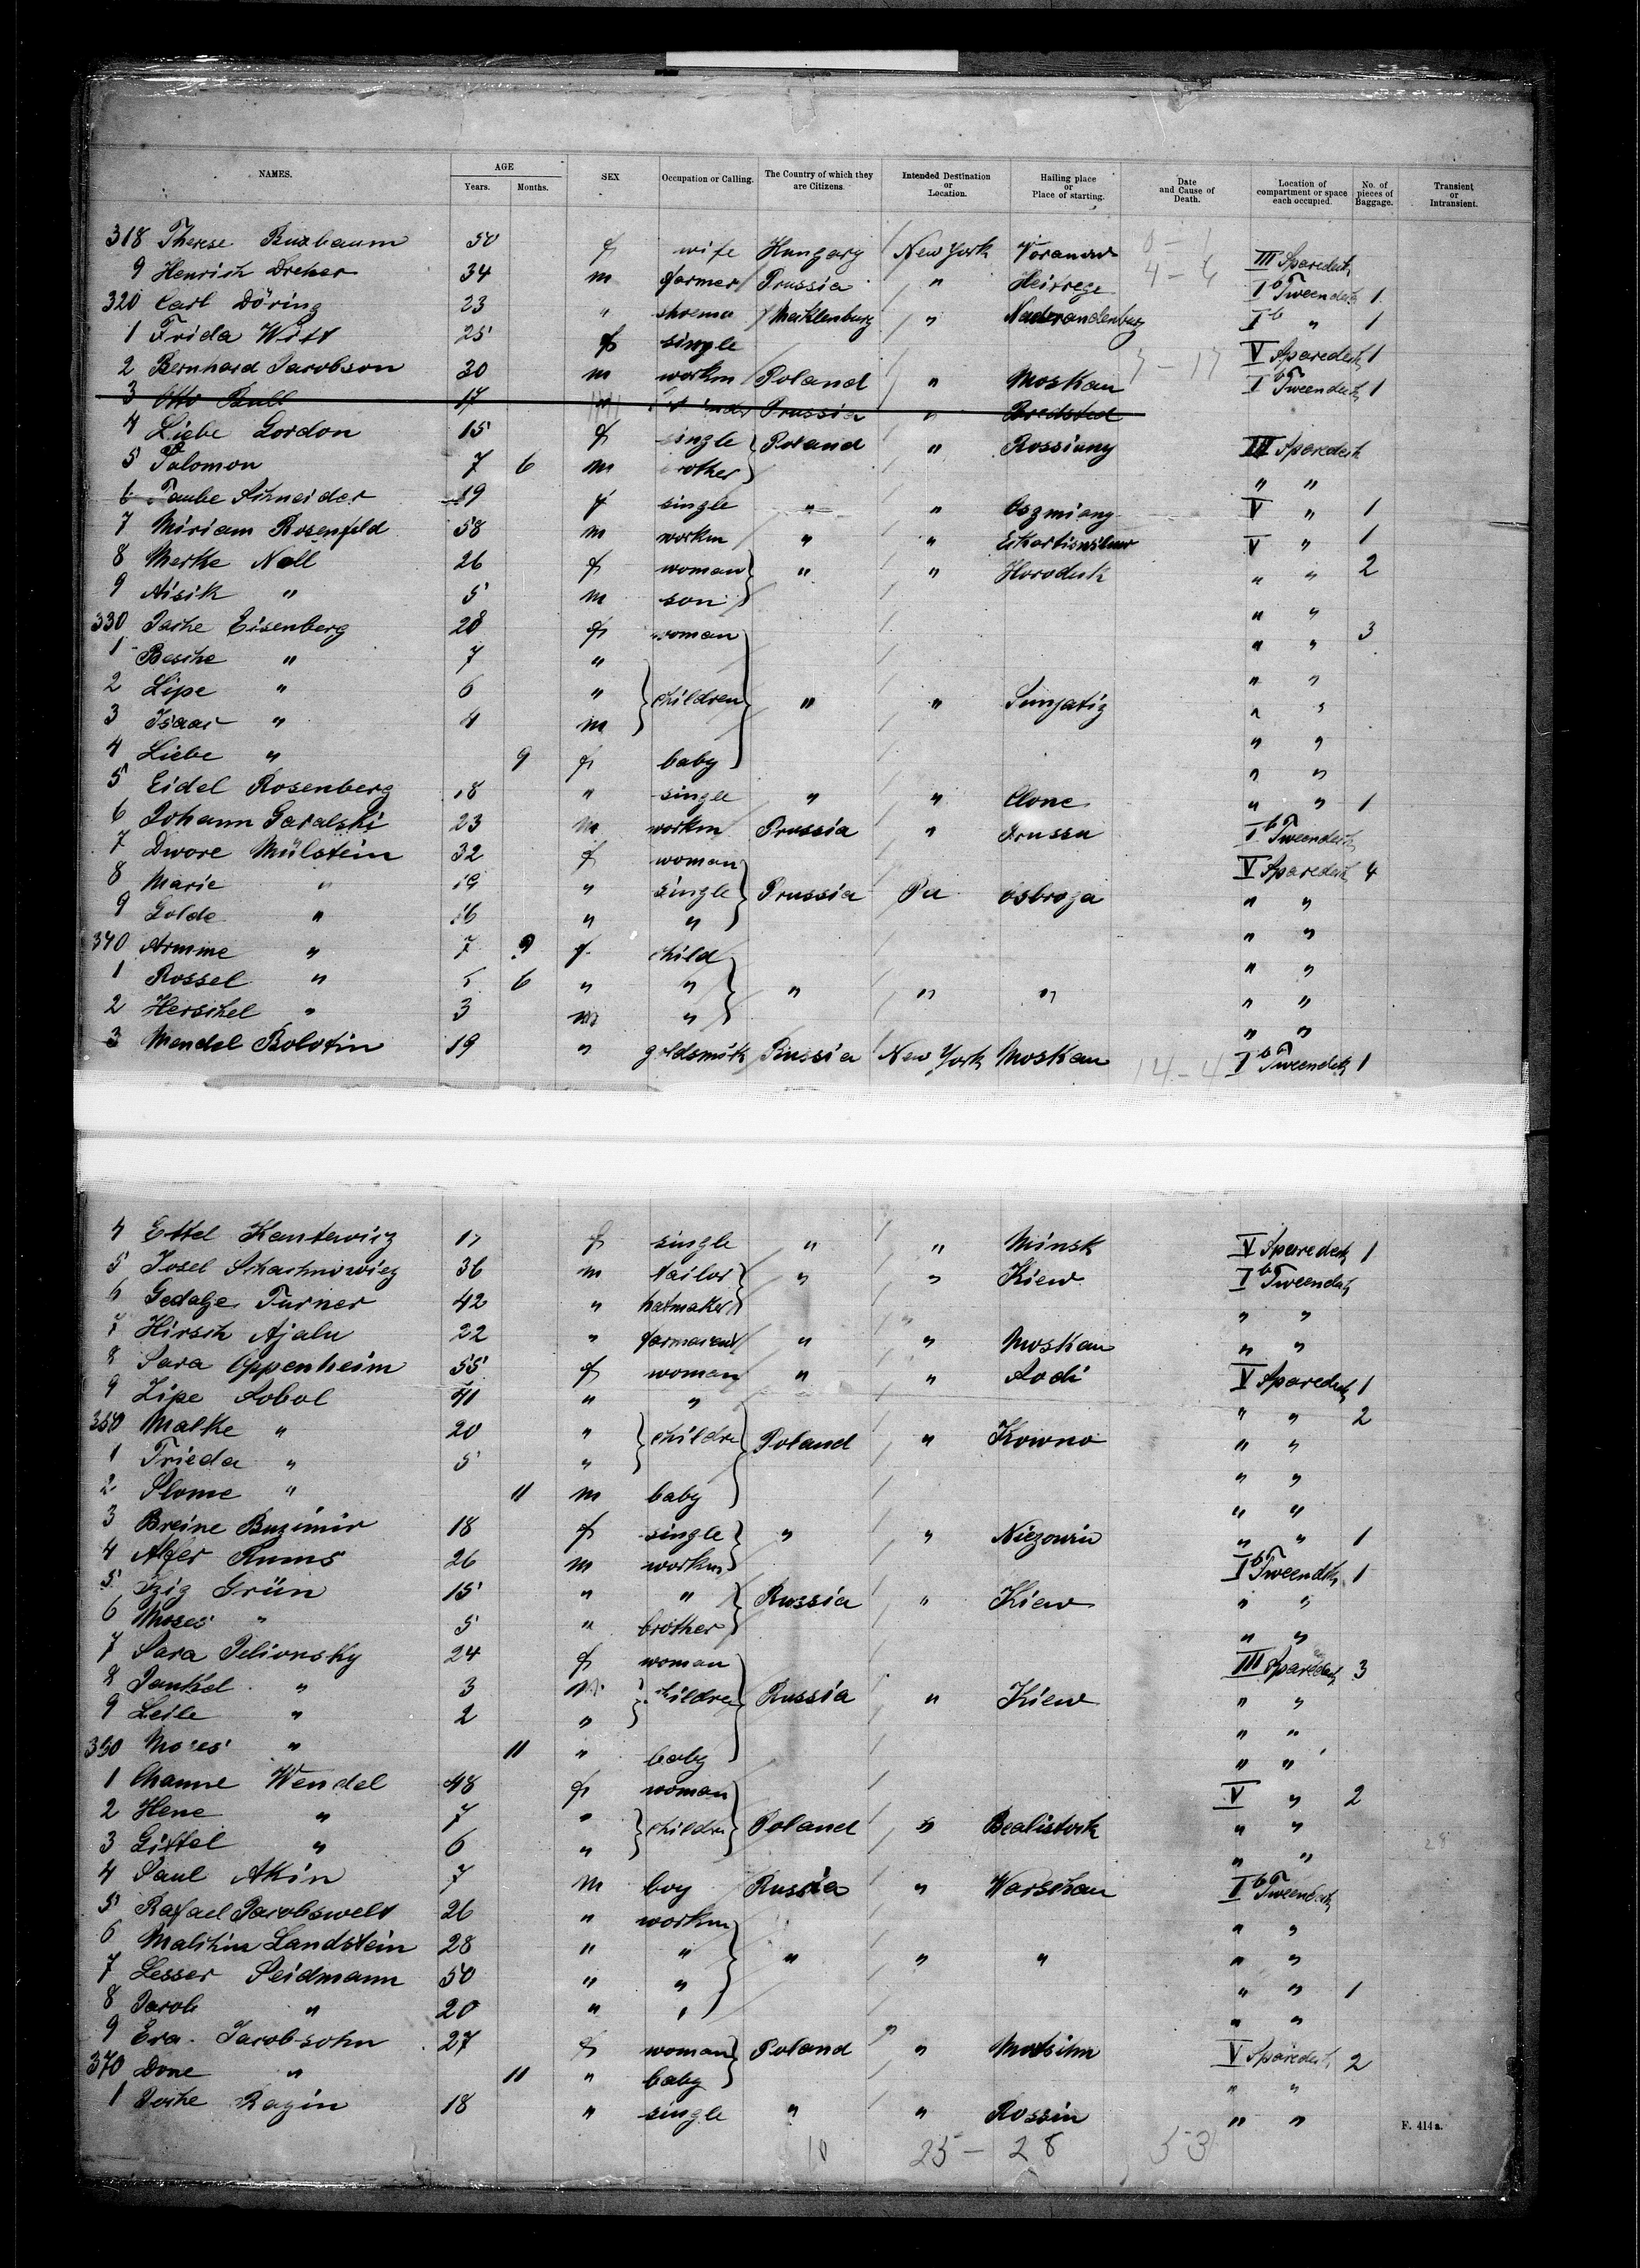 NAMES. AGE Years. Months. SEX Occupation or Calling. The Country of which they are Citizens. Intended Destination or Location. Hailing place or Place of starting. Date and Cause of Death. Location of compartment or space each occupied. No. of pieces of Baggage. Transient or Intransient.
318 Therese Buxbaum 50 f wife Hungary New York Voranow III Sparedeck
9 Henrich Dreher 34 m farmer Prussia " Heirrege Ib Tweendeck 1
320 Carl Döring 23 " Mecklenburg " Ib " 1
1 Frida Witt 25 f single V Sparedeck 1
2 Bernhard Jacobson 30 m workm Poland " Moskau Ib Tweendeck 1
3 Otto Bull 17 m Prussia " Bredsted
4 Liebe Gordon 15 f single Poland " Rossiany III Sparedeck
5 Salomon 7 6 m brother " "
6 Taube Schneider 19 f single " " Oszmiany V " 1
7 Miriam Rosenfeld 58 m workm " " V " 1
8 Merke Noll 26 f woman " " Horodeck " " 2
9 Aisik " 5 m son " "
330 Jache Eisenberg 28 f woman " " 3
1 Besche " 7 " " "
2 Lipe " 6 " children " " " "
3 Isaac " 4 m " "
4 Liebe " 9 f baby " "
5 Eidel Rosenberg 18 " single " " Clone " " 1
6 Johann Garalski 23 m workm Prussia " Ib Tweendeck
7 Dwore Mülstein 32 f woman V Sparedeck 4
8 Marie " 19 " single Prussia Pa osbroga " "
9 Golde " 16 " " " "
340 Armine " 7 9 f child " "
1 Rossel " 5 6 " " " " " " "
2 Herschel " 3 m " " "
3 Mendel Bolotin 19 " goldsmith Russia New York Moskau 14-4 Ib Tweendeck 1
4 Ettel Kantewicz 17 f single " " Minsk V Sparedeck 1
5 Josel Schachnowicz 36 m tailor " " Kiew Ib Tweendeck
6 Gedalje Turner 42 " hatmaker " "
7 Hirsch Ajalu 22 " " " Moskau " "
8 Sara Oppenheim 55 f woman " " Lodi V Sparedeck 1
9 Zipe Sobol 41 " " " " 2
350 Malke " 20 " childre Poland " Kowno " "
1 Frieda " 5 " " "
2 Slome " 11 m baby " "
3 Breine Buzimir 18 f single " " " " 1
4 Alter Rums 26 m workm Ib Tweendeck 1
5 Izig Grün 15 " " Russia " Kiew " "
6 Moses " 5 " brother " "
7 Sara Pelionsky 24 f woman III Sparedeck 3
8 Jankel " 3 m children Russia " Kiew " "
9 Leile " 2 " " "
360 Moses " 11 " baby " "
1 Channe Wendel 48 f woman V " 2
2 Hene " 7 " childre Poland " Bealistock " "
3 Gittel " 6 " " "
4 Saul Akin 7 m boy Russia " Warschau Ib Tweendeck
5 Rafael Jacobswelt 26 " workm " "
6 Landstein 28 " " " " " " "
7 Lesser Seidmann 50 " " " " 1
8 Jacob " 20 " " " "
9 Eva Jacobsohn 27 f woman Poland " V Sparedeck 2
370 Done " 11 " baby " "
1 Jache Razin 18 " single " " Rossin " "
F. 414a.
10 25-28 53